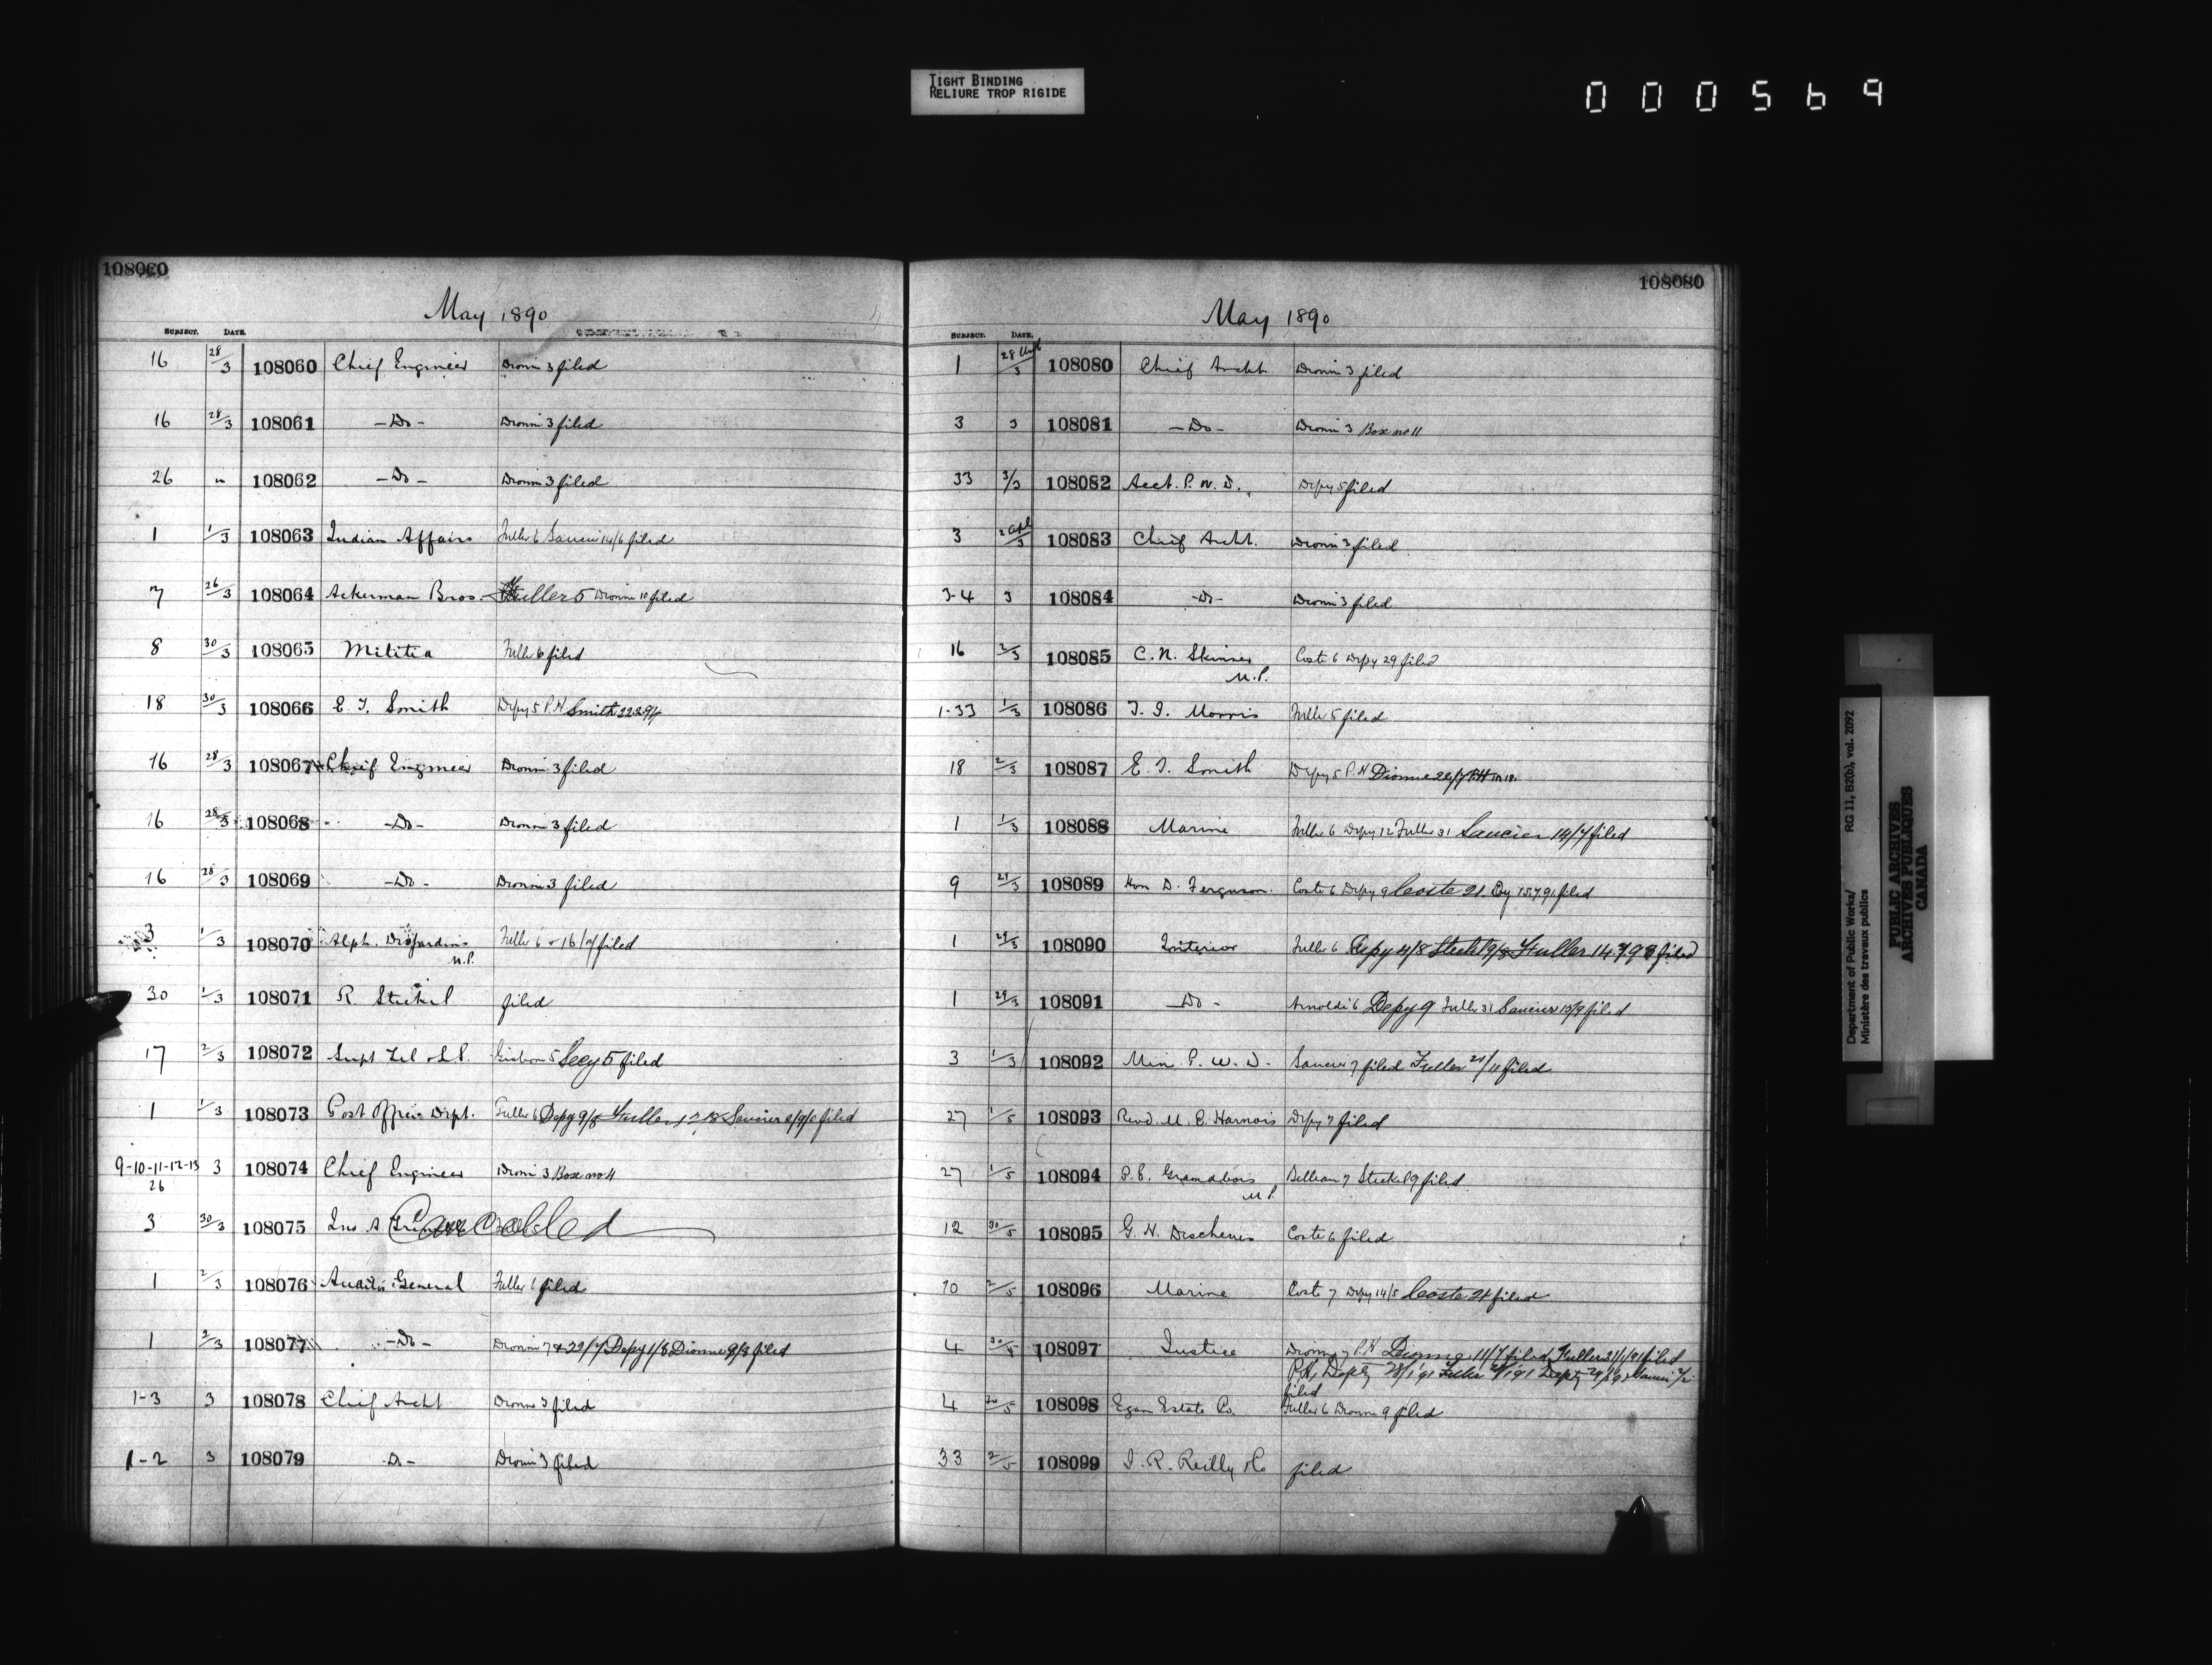 TIGHT BINDING
RELIURE TROP RIGIDE
000569
108060
May 1890
SUBJECT. DATE.
16 28/3 108060 Chief Engineer Dionne 3 filed
16 28/3 108061 -Do- Dionne 3 filed
26 " 108062 -Do- Dionne 3 filed
1 1/3 108063 Indian Affairs Fuller 6 Saucier 14/6 filed
7 26/3 108064 Ackerman Bros. Fuller 5 Dionne 10 filed
8 30/3 108065 Militia Fuller 6 filed
18 30/3 108066 E. T. Smith Depy 5 P.H Smith
16 28/3 108067 Chief Engineer Dionne 3 filed
16 28/3 108068 -Do- Dionne 3 filed
16 28/3 108069 -Do- Dionne 3 filed
3 1/3 108070 Alph. Desjardins Fuller 6 filed
M.P.
30 1/3 108071 R. Steckel filed
17 2/3 108072 Supt Tel & S.S. Gisborne 5 Secy 5 filed
1 1/3 108073 Post Office Dept. Fuller 6 Depy 9/8 Fuller 12/8 Saucier filed
9-10-11-12-13 3 108074 Chief Engineer Dionne 3 Box no 11
26
3 30/3 108075 Jno A. Cancelled
1 2/3 108076 Auditor General Fuller 6 filed
1 2/3 108077 -Do- Dionne 7 & 22/7 Depy 1/8 Dionne 9/8 filed
1-3 3 108078 Chief Archt Dionne 3 filed
1-2 3 108079 -Do- Dionne 3 filed
108080
May 1890
SUBJECT. DATE.
1 28 108080 Chief Archt. Dionne 3 filed
3 3 108081 -Do- Dionne 3 Box no 11
33 3/3 108082 Acct. P. W. D. Depy 5 filed
3 2 Apl/3 108083 Chief Archt. Dionne 3 filed
3-4 3 108084 -Do- Dionne 3 filed
16 2/3 108085 C. N. Skinner Coste 6 Depy 29 filed
M.P.
1-33 1/3 108086 T. I. Morris Fuller 5 filed
18 2/3 108087 E. T. Smith Depy 5 P.H Dionne 22/7 P.H
1 1/3 108088 Marine Fuller 6 Depy 12 Fuller 31 Saucier 14/7 filed
9 29/3 108089 Hon D. Ferguson. Coste 6 Depy 9 Coste 21. filed
1 29/3 108090 Interior Fuller 6 Depy 4/8 Steckel 9/8 Fuller filed
1 29/3 108091 -Do- Arnoldi 6 Depy 9 Fuller 31 Saucier 13/9 filed
3 1/3 108092 Min. P. W. D. Saucier 7 filed Fuller 21/11 filed
27 1/5 108093 Revd. M. E. Harnois Depy 7 filed
27 1/5 108094 P. E. Grandbois Belleau 7 Steckel 9 filed
M.P.
12 30/5 108095 G. H. Deschenes Coste 6 filed
10 2/5 108096 Marine Coste 7 Depy 14/5 Coste 21 filed
4 30/5 108097 Justice Dionne 7 P.H Dionne 11/7 filed Fuller 21/1/91 filed
P.H, Depty 28/1/91 Fuller Depty Saucier
filed
4 30/5 108098 Egan Estate Co. Fuller 6 Dionne 9 filed
33 2/5 108099 J. R. Reilly & Co filed
Department of Public Works/ RG 11, B2(b), vol. 2092
Ministère des travaux publics
PUBLIC ARCHIVES
ARCHIVES PUBLIQUES
CANADA